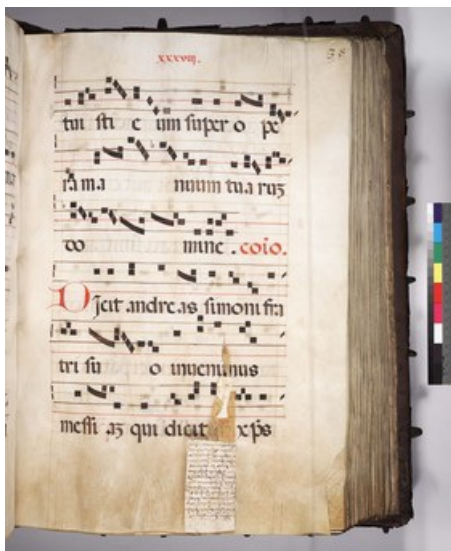 xxxviij.
38
tui sti e um super o pe
ra ma nuum tua ruʒ
do mine . coı̄o.
Dicit andreas simoni fra
tri su o inuenimus
messi aʒ qui dicit xp̄s